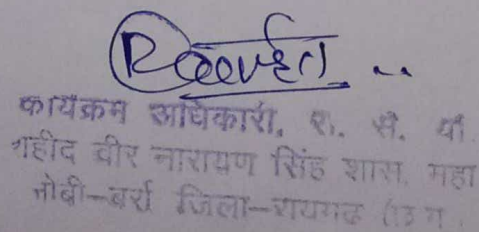 कार्यक्रम अधिकारी, रा. से. यो.
शहीद वीर नारायण सिंह शास. महा
जोबी-बर्रा जिला-रायगढ़ (छ ग.